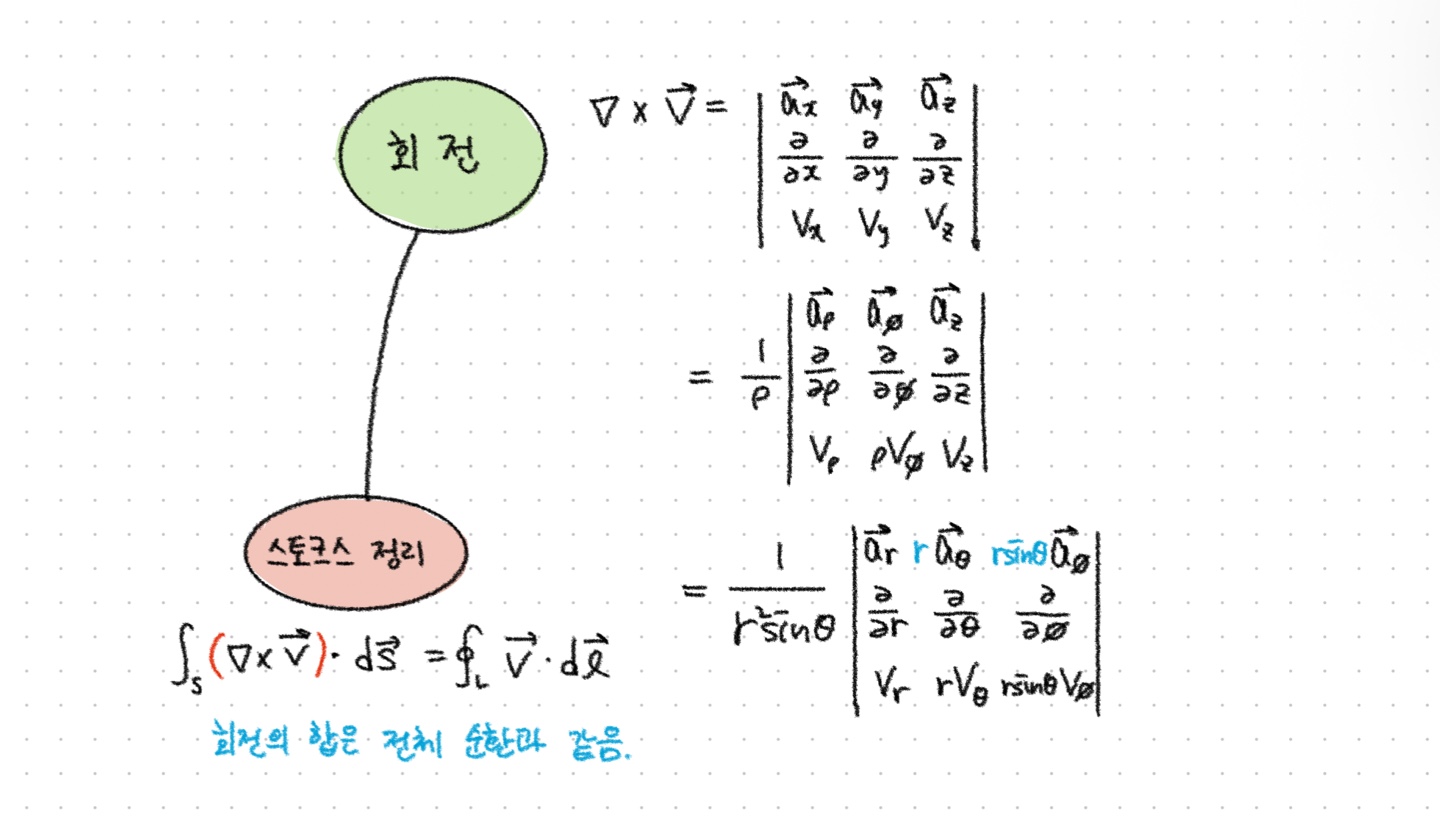 회전
∇ × V⃗ = | a⃗x a⃗y a⃗z |
| ∂/∂x ∂/∂y ∂/∂z |
| Vx Vy Vz |
= 1/ρ | a⃗ρ a⃗ø a⃗z |
| ∂/∂ρ ∂/∂ø ∂/∂z |
| Vρ ρVø Vz |
= 1/r²sinθ | a⃗r r a⃗θ rsinθ a⃗ø |
| ∂/∂r ∂/∂θ ∂/∂ø |
| Vr rVθ rsinθVø |
스토크스 정리
∫s (∇× V⃗) · ds⃗ = ∮L V⃗ · dℓ⃗
회전의 합은 전체 순환과 같음.